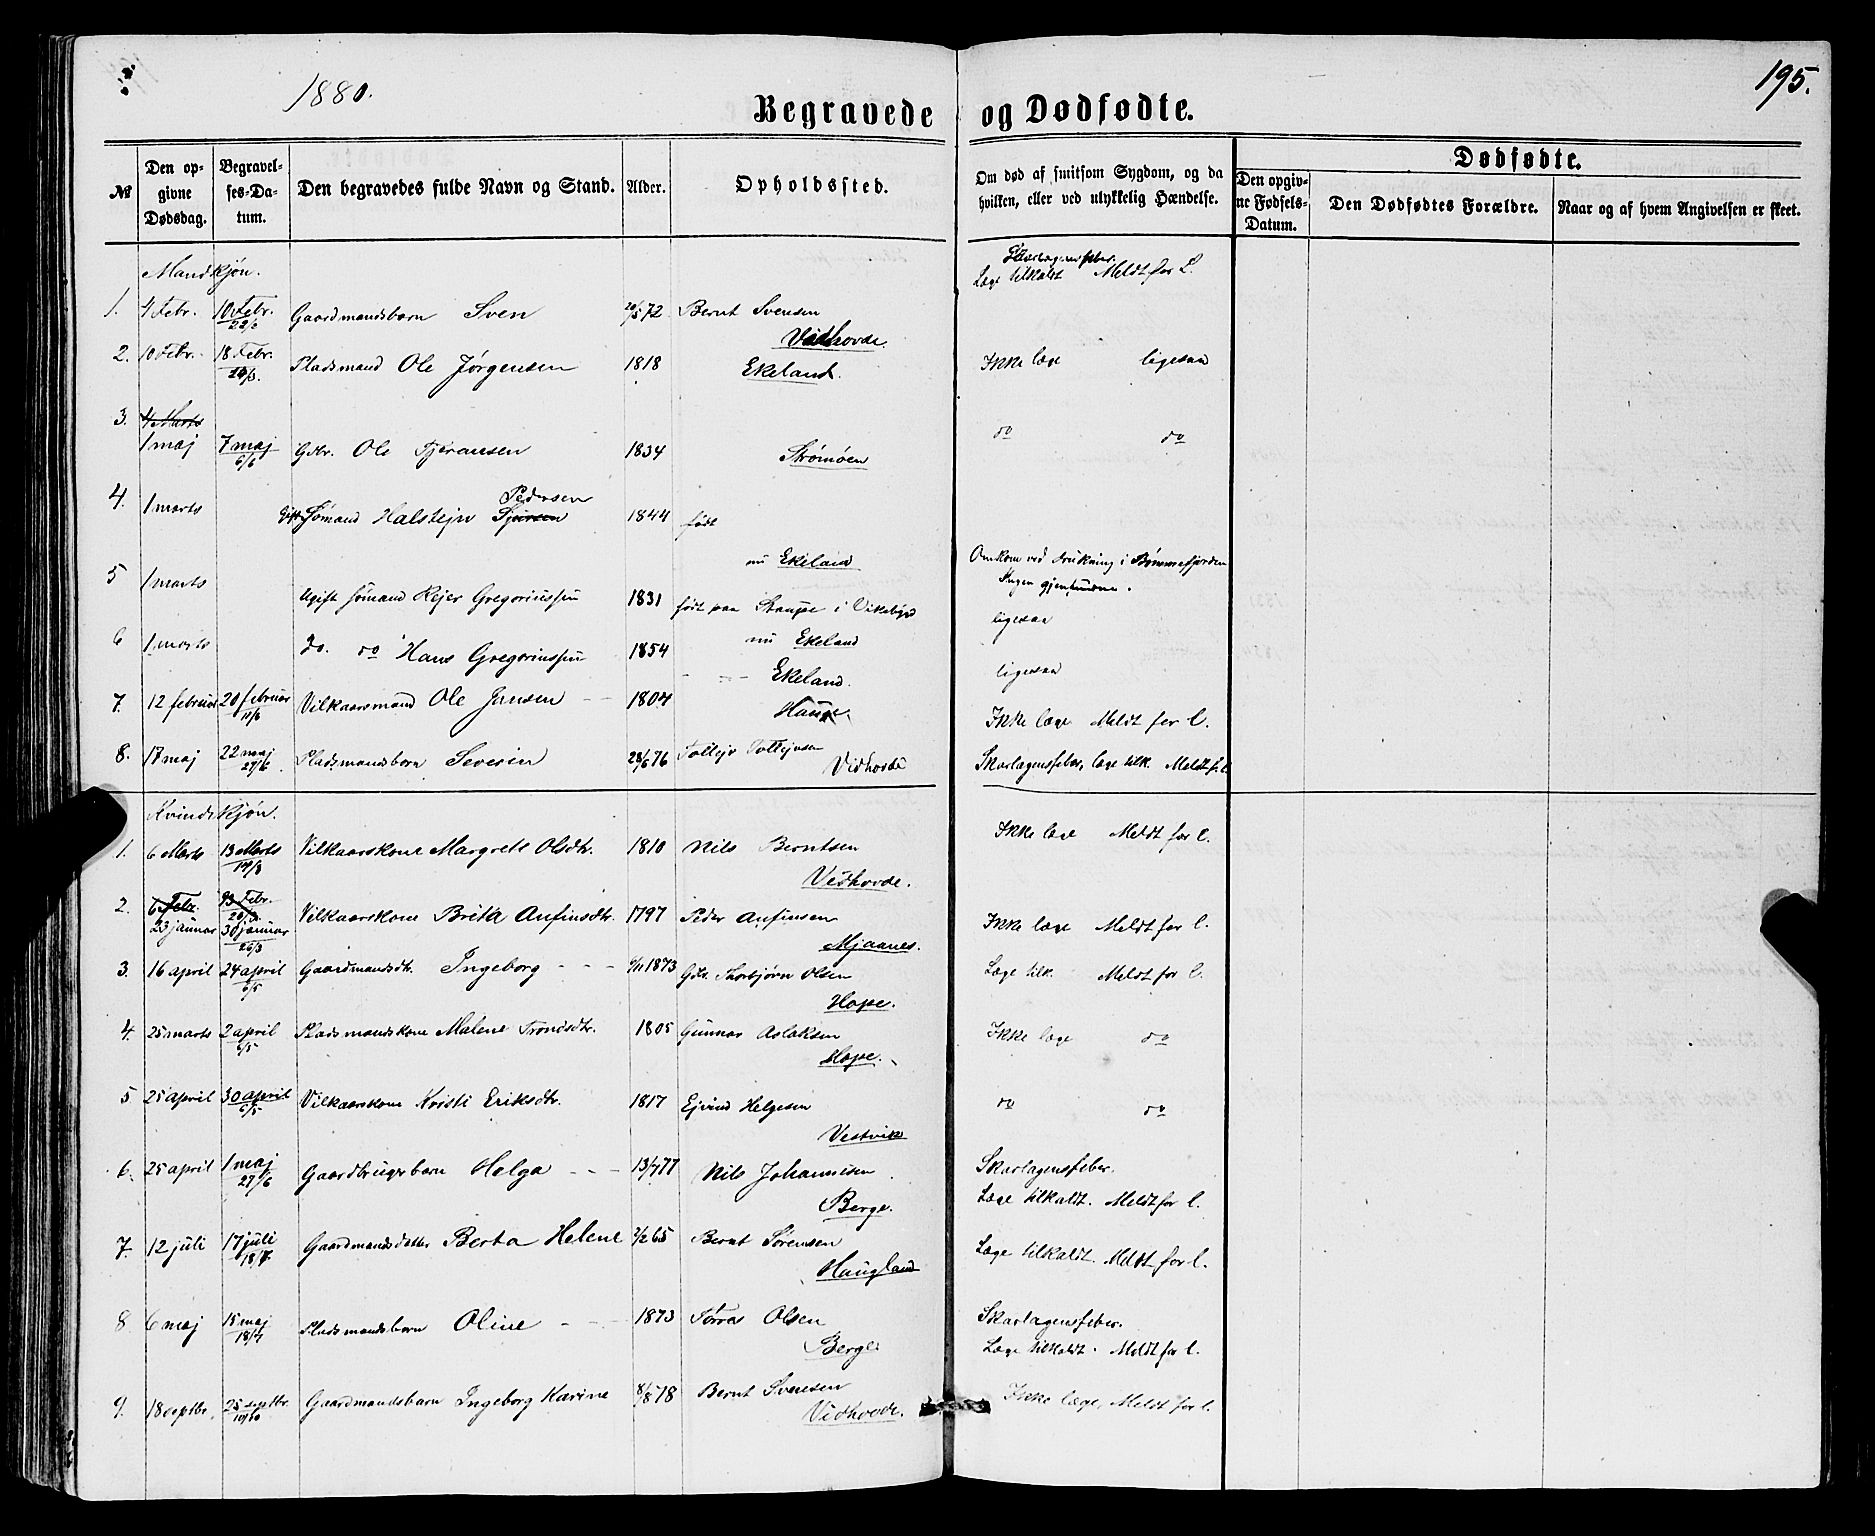 1880.
195.
Begravede og Dødfødte.
№
Den opgivne Dødsdag.
Begravelses-Datum.
Den begravedes fulde Navn og Stand.
Alder.
Opholdssted.
Om død af smitsom Sygdom, og da hvilken, eller ved ulykkelig Hændelse.
Dødfødte.
Den opgivne Fødsels-Datum.
Den Dødfødtes Forældre.
Naar og af hvem Angivelsen er skeet.
Mandkjøn.
1. 4 Febr. 10 Febr. 22/2 Gaardmandsbarn Sven 20/5 72 Bernt Svensen Vidhovde. Skarlagensfeber. Læge tilkaldt Meldt for L.
2. 10 Febr. 18 Febr. Pladsmand Ole Jørgensen 1818 Ekeland. Ikke læge ligesaa
3. 4 Marts 1 maj 7 maj 6/6 Gdbr. Ole Tjeransen 1834 Strømøen do do
4. 1 marts Gift Sømand Halstejn Sjursen Pedersen 1844 født nu Ekeland Omkom ved drukning i Bømmelfjorden Ingen gjenfundne.
5 1 marts Ugift sømand Rejer Gregoriussen 1831 født paa Staupe i Vikebygd nu Ekeland ligesaa
6 1 marts do. do Hans Gregoriussen 1854 - - - Ekeland. ligesaa
7. 12 februar 20 februar Vilkaarsmand Ole Jansen - - 1804 Hauge. Ikke læge Meldt for l.
8. 17 maj 22 maj 27/6 Pladsmandsbarn Severin 28/6 76 Tollejv Tollejvsen Vidhovde Skarlagensfeber, læge tilk. Meldt f. l.
Kvindekjøn.
1. 6 Marts 13 Marts 14/3 Vilkaarskone Margrete Olsdtr. 1810 Nils Berntsen Vidhovde. Ikke læge Meldt for l.
2. 6 Febr. 13 Febr. 23 januar 30 januar 26/3 Vilkaarskone Brita Anfinsdtr. 1797 Peder Anfinsen Mjaanes. Ikke læge Meldt for l.
3. 16 april 24 april 6/5 Gaardmandsdtr. Ingeborg - - - 9/11 1873 Gdbr. Thorbjørn Olsen Hope. Læge tilk. Meldt for l.
4. 25 marts 2 april 6/5 Pladsmandskone Malene Trondsdtr. 1805 Gunnar Aslaksen Hope. Ikke læge do
5 25 april 30 april 6/5 Vilkaarskone Kristi Eriksdtr. 1817 Ejvind Helgesen Vestvik do do
6. 25 april 1 maj 27/6 Gaardbrugerbarn Helga - - - 13/7 77 Nils Johannesen Berge. Skarlagensfeber. Læge tilkaldt. Meldt for l.
7. 12 juli 17 juli 18/7 Gaardmandsdatter Berta Helene 2/2 65 Bernt Sørensen Haugland Læge tilkaldt. Meldt for l.
8. 6 maj 15 maj 18/7 Pladsmandsbarn Oline - - - 1873 Tørres Olsen Berge Skarlagensfeber. Læge tilkaldt. Meldt for l.
9. 18 septbr. 25 septbr. 10/10 Gaardmandsbarn Ingeborg Karine 8/8 78 Bernt Svensen Vidhovde. Ikke læge, Meldt for l.